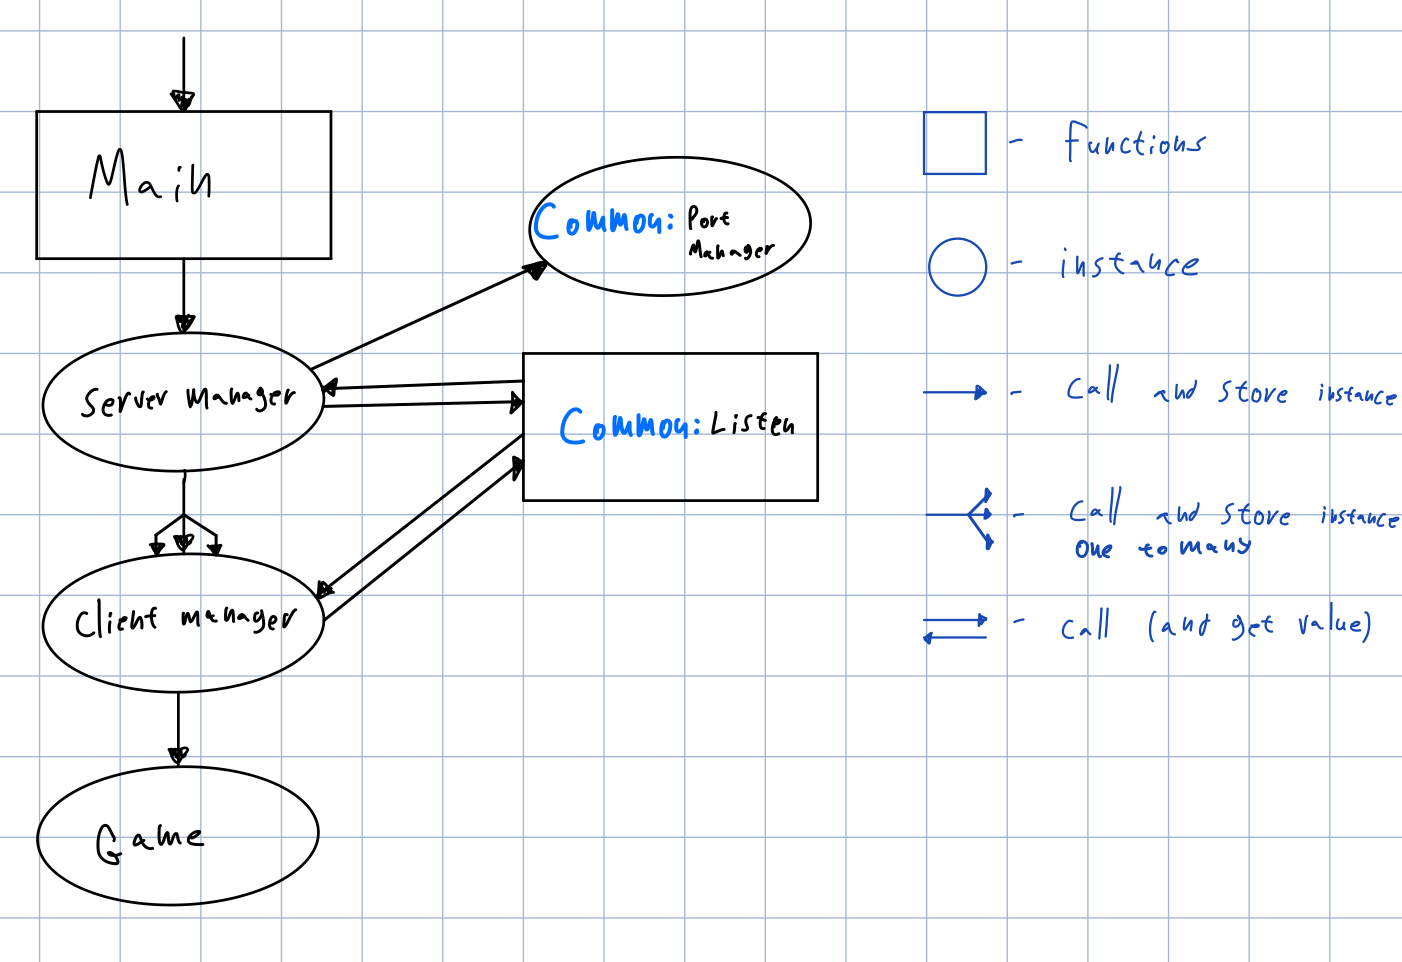 Main
Common: Port
Manager
Server Manager
Common: Listen
Client manager
Game
- functions
- instance
- Call and store instance
- Call and store instance
one to many
- call (and get value)